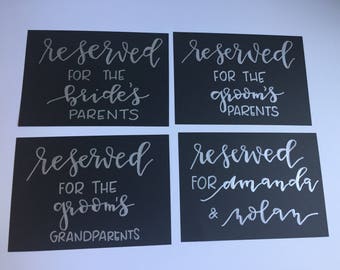 reserved
FOR THE
bride's
PARENTS
reserved
FOR THE
groom's
PARENTS
reserved
FOR THE
groom's
GRANDPARENTS
reserved
FOR amanda
& nolan